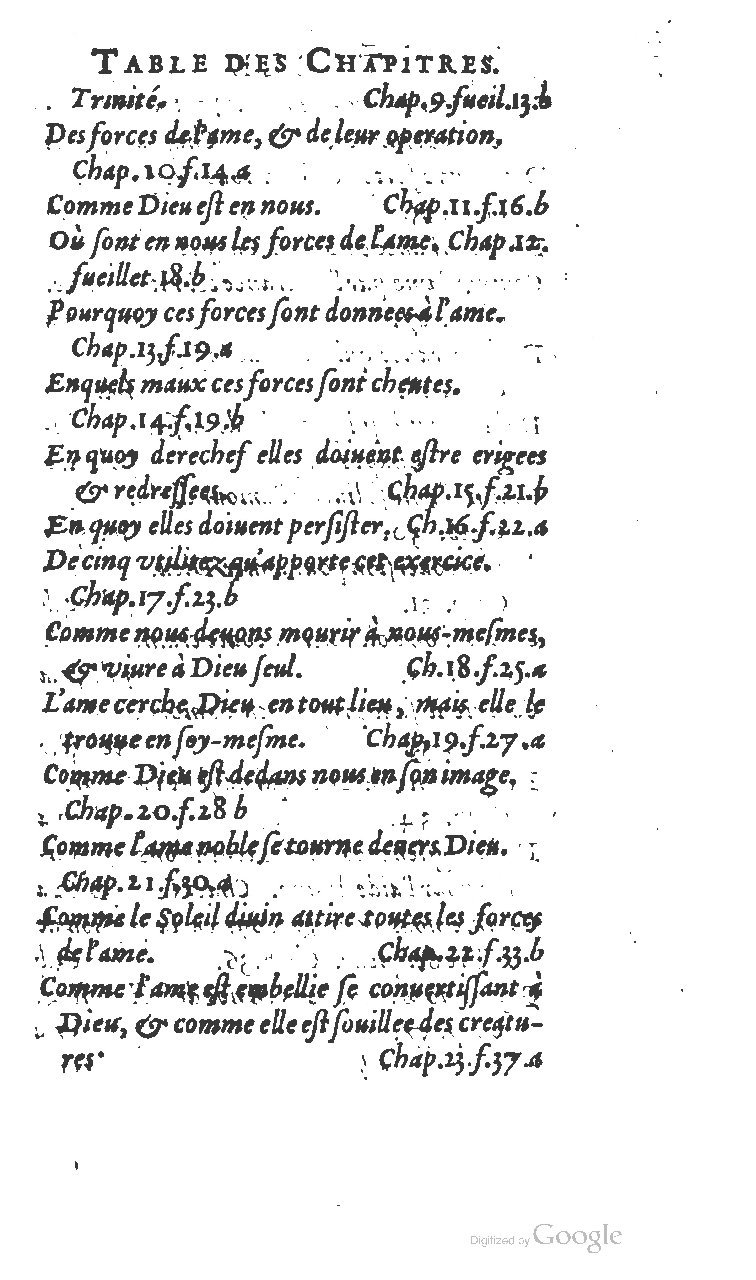 TABLE DES CHAPITRES.
Trinité. Chap.9.fueil.13.b
Des forces de l'ame, & de leur operation,
Chap.10.f.14.a
Comme Dieu eſt en nous. Chap.11.f.16.b
Où ſont en nous les forces de l'ame. Chap.12.
fueillet 18.b
Pourquoy ces forces ſont donnees à l'ame.
Chap.13.f.19.a
En quels maux ces forces ſont cheutes.
Chap.14.f.19.b
En quoy derechef elles doiuent eſtre erigees
& redreſſees. Chap.15.f.21.b
En quoy elles doiuent perſiſter. Ch.16.f.22.a
De cinq vtilitez qu'apporte cet exercice.
Chap.17.f.23.b
Comme nous deuons mourir à nous-meſmes,
& viure à Dieu ſeul. Ch.18.f.25.a
L'ame cerche Dieu en tout lieu, mais elle le
trouue en ſoy-meſme. Chap.19.f.27.a
Comme Dieu eſt dedans nous en ſon image.
Chap.20.f.28 b
Comme l'ame noble ſe tourne deuers Dieu.
Chap.21.f.30.a
Comme le Soleil diuin attire toutes les forces
de l'ame. Chap.22.f.33.b
Comme l'ame eſt embellie ſe conuertiſſant à
Dieu, & comme elle eſt ſouillee des creatu-
res. Chap.23.f.37.a
Digitized by Google